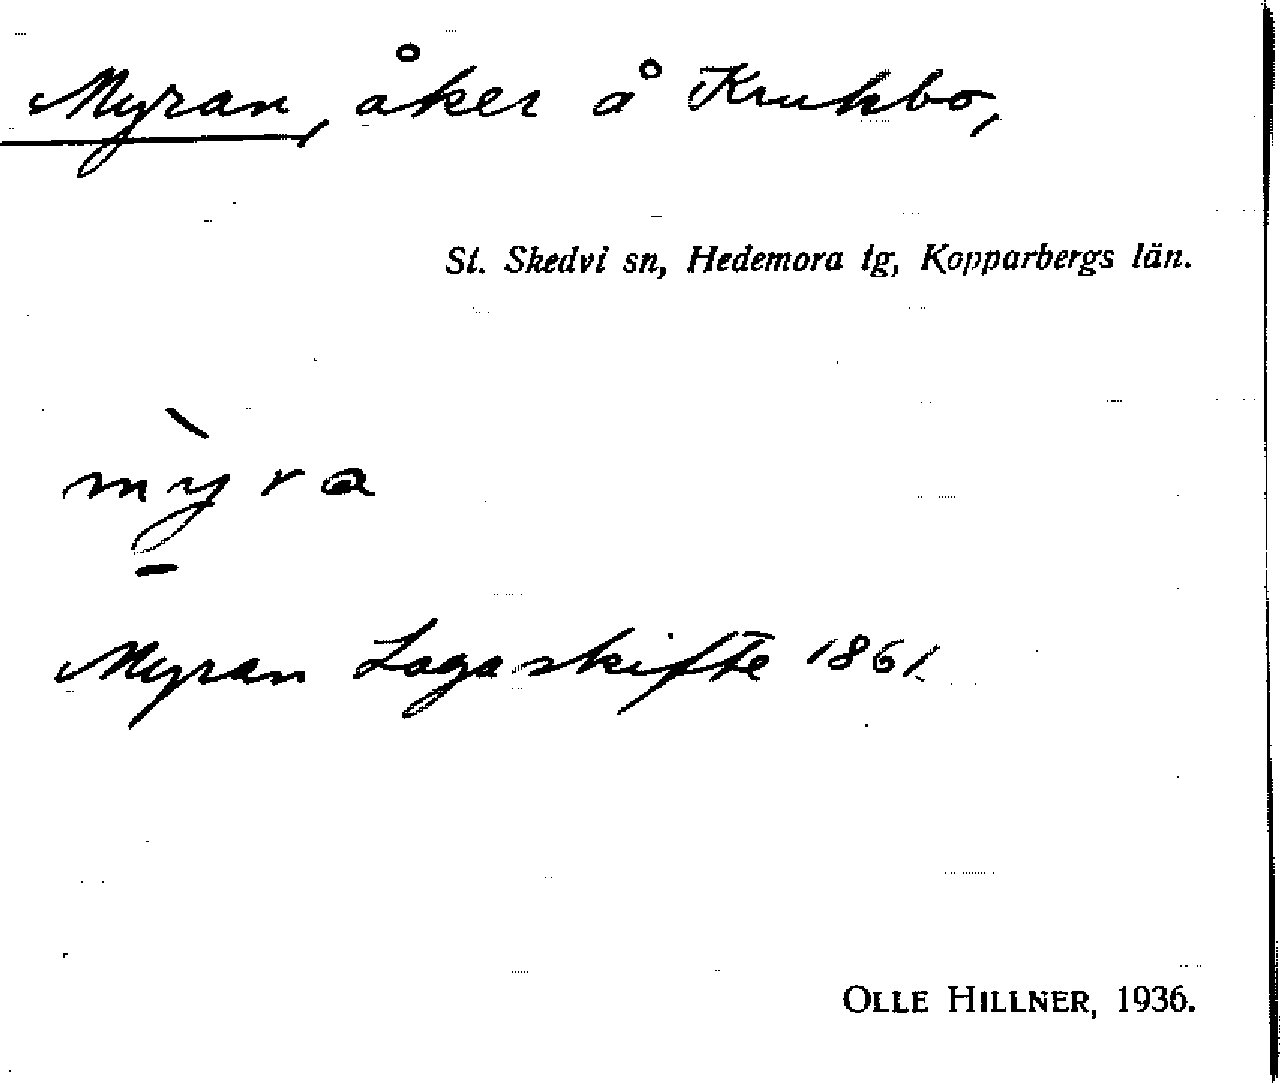 Myran, åker å Krukbo,
St. Skedvi sn, Hedemora tg, Kopparbergs län.
mỳ̱ra
Myran Laga skifte 1861.
OLLE HILLNER, 1936.